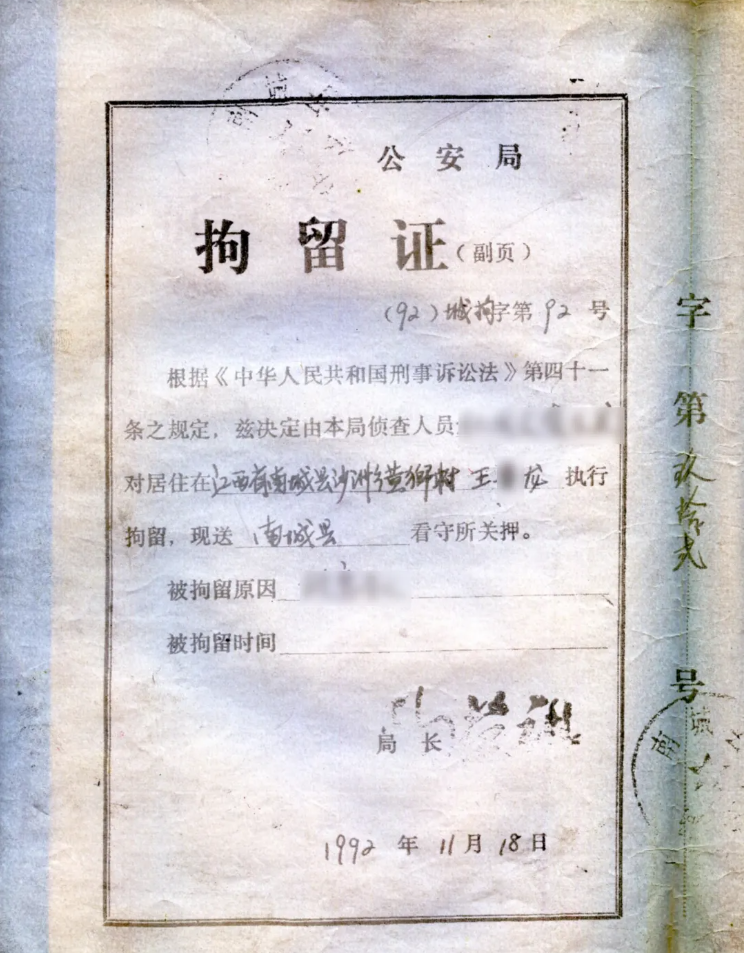 公安局
拘留证（副页）
（92）城拘字第92号
根据《中华人民共和国刑事诉讼法》第四十一
条之规定，兹决定由本局侦查人员
对居住在江西省南城县沙洲乡黄狮村 王 龙 执行
拘留，现送 南城县 看守所关押。
被拘留原因
被拘留时间
局长
1992年11月18日
字第玖拾贰号
南城
南城